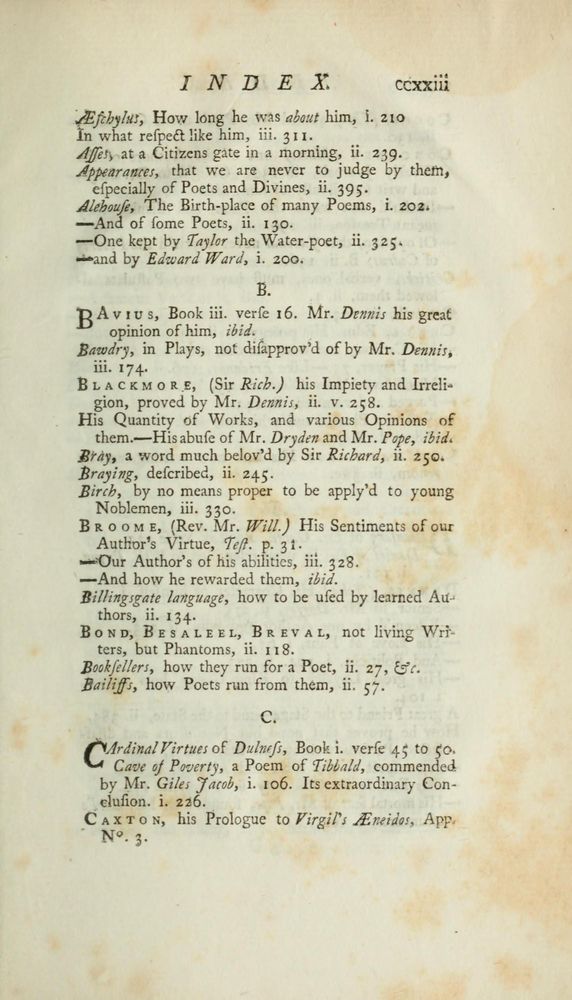 INDEX. ccxxiii
Æſchylus, How long he was about him, i. 210
In what reſpect like him, iii. 311.
Aſſes, at a Citizens gate in a morning, ii. 239.
Appearances, that we are never to judge by them,
eſpecially of Poets and Divines, ii. 395.
Alehouſe, The Birth-place of many Poems, i. 202.
—And of ſome Poets, ii. 130.
—One kept by Taylor the Water-poet, ii. 325.
—and by Edward Ward, i. 200.
B.
BAVIUS, Book iii. verſe 16. Mr. Dennis his great
opinion of him, ibid.
Bawdry, in Plays, not diſapprov'd of by Mr. Dennis,
iii. 174.
BLACKMORE, (Sir Rich.) his Impiety and Irreli-
gion, proved by Mr. Dennis, ii. v. 258.
His Quantity of Works, and various Opinions of
them.—His abuſe of Mr. Dryden and Mr. Pope, ibid.
Bray, a word much belov'd by Sir Richard, ii. 250.
Braying, deſcribed, ii. 245.
Birch, by no means proper to be apply'd to young
Noblemen, iii. 330.
BROOME, (Rev. Mr. Will.) His Sentiments of our
Author's Virtue, Teſt. p. 31.
—Our Author's of his abilities, iii. 328.
—And how he rewarded them, ibid.
Billingsgate language, how to be uſed by learned Au-
thors, ii. 134.
BOND, BESALEEL, BREVAL, not living Wri-
ters, but Phantoms, ii. 118.
Bookſellers, how they run for a Poet, ii. 27, &c.
Bailiffs, how Poets run from them, ii. 57.
C.
CArdinal Virtues of Dulneſs, Book i. verſe 45 to 50.
Cave of Poverty, a Poem of Tibbald, commended
by Mr. Giles Jacob, i. 106. Its extraordinary Con-
cluſion. i. 226.
CAXTON, his Prologue to Virgil's Æneidos, App.
Nº. 3.